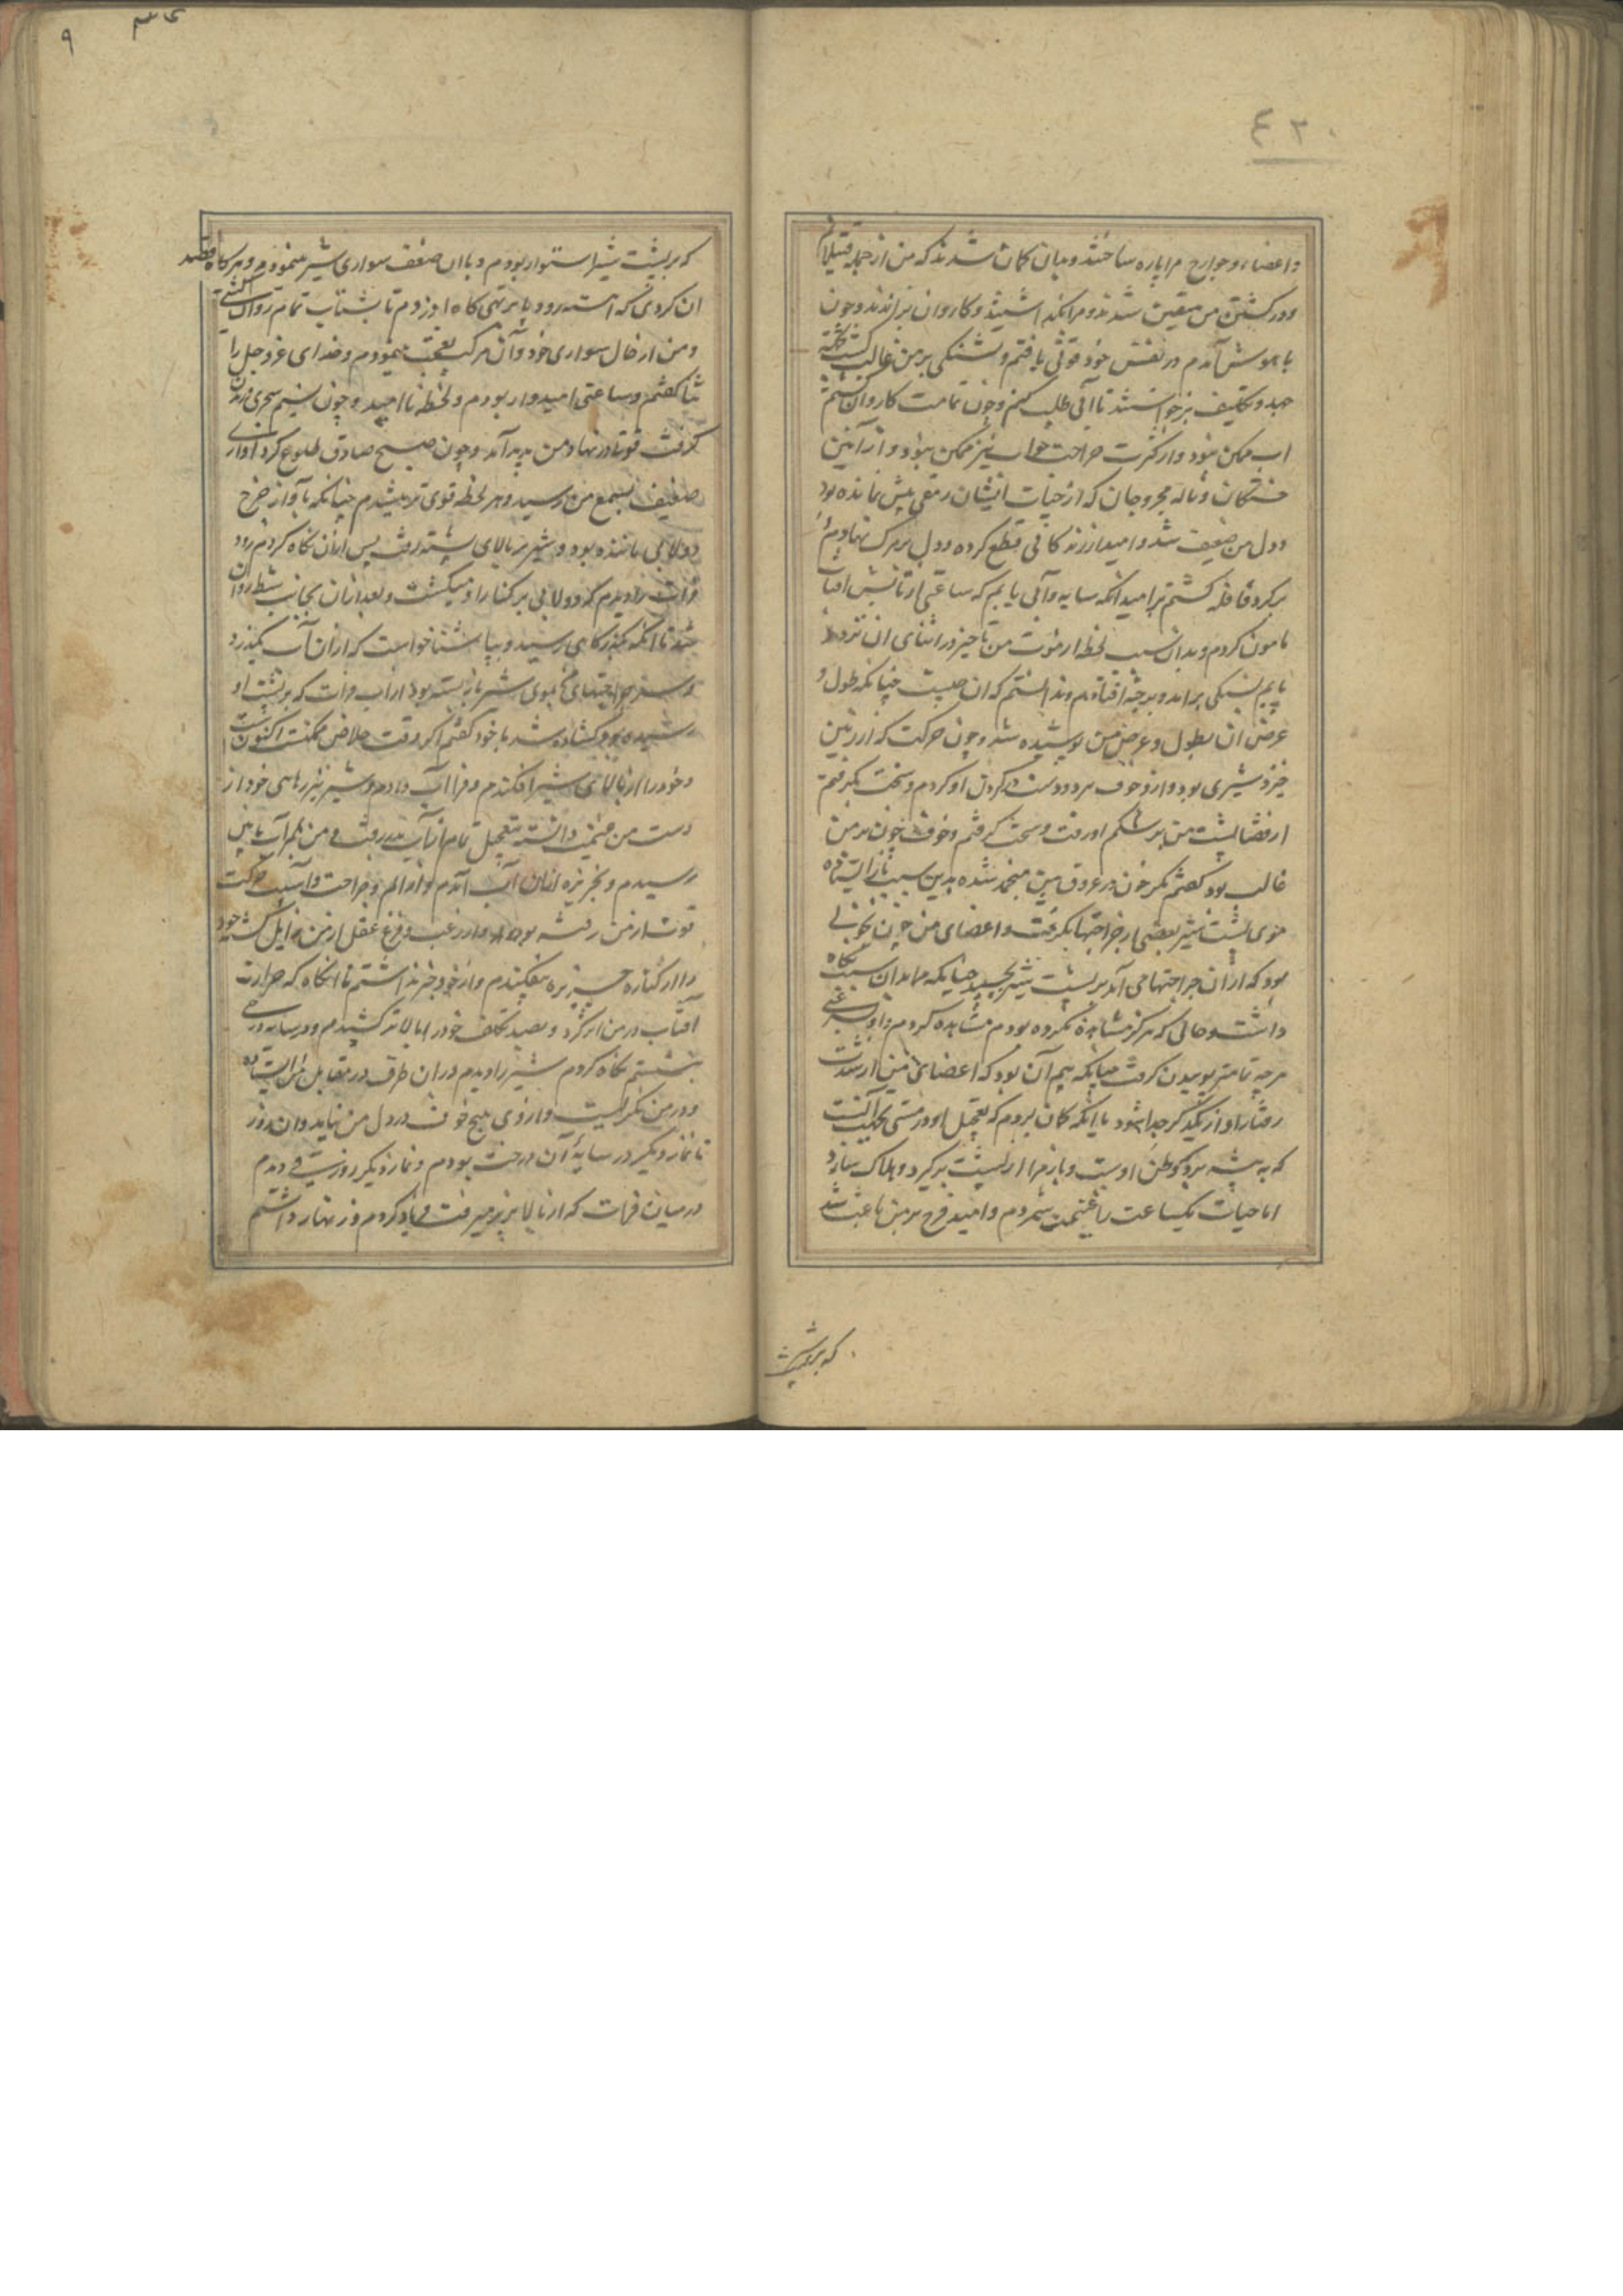 ٤٢٠
واعضاء و جوارح مرا پاره ساختند و بدان کمان شدند که من از جمله قتیلانم
و در کشتن من متیقن شدند و مرا بکذاشتند و کاروان براندند و چون
با هوش آمدم در نفس خود قوتی یافتم و تشنکی بر من غالب کشته
بجهد و تکلیف برخواستند تا آبی طلب کنم و چون تمامت کاروان
اب ممکن نبود و از کثرت جراحت خواب نیز ممکن نبود و از آنین
خستکان و ناله مجروحان که از حیات ایشان رمقی بیش نمانده بود
و دل من ضعیف شد و امید از زندکانی قطع کرده و دل بر مرک نهادم
بر کرد قافله کشتم بر امید انکه سایه و آبی یابم که ساعتی از تابش افتاب
مامون کردم و بدان سبب لحظه از موت من تاخیر در اثنای ان تردد
پایم بسنکی برامد و بر چیزی افتادم و ندانستم که ان چیست چنانکه طول و
عرض ان بطول و عرض من پوشیده شد و چون حرکت که از زمین
خیزد شیری بود و از خوف مرد دو دست در کردن او کردم و سخت بکرفتم
از قضا پشت من بر شکم او رفت و سخت کرفتم و خوف چون بر من
غالب بود کفتم مکر خون در عروق من منجمد شده بدین سبب باز ایستاده
موی پشت شیر بعضی از جراحتها بکرفت و اعضای من چون خونی
بود که از ان جراحتها می آمد بر پشت شیر بچسبید چنانکه مرا بدان سبب نکاه
داشت و حالی که هرکز مشاهده نکرده بودم مشاهده کردم و او بسرعتی
هر چه تمامتر پوییدن کرفت چنانکه بیم آن بود که اعضای من از شدت
رفتار او از یکدیکر جدا شود با انکه کمان بردم که تعجیل او در مشی بجهت آنست
که به بیشه برد که وطن اوست و باز مرا از پشت بر کیرد و هلاک سازد
اما حیات یکساعت را غنیمت شمردم و امید فرح بر من باعث شد
که بر پشت
٩
که بر پشت شیر استوار بودم و با ان ضعف سواری شیر مینمودم و هر کاه قصد
ان کردی که اهسته رود پا بر تهی کاه او زدم تا بشتاب تمام روان کشتی
و من از حال سواری خود و آن مرکب تعجب مینمودم و خدای عز و جل را
ثنا کفتم و ساعتی امیدوار بودم و لحظه نا امید و چون نسیم سحری وزیدن
کرفت قوتی در نهاد من پدید آمد و چون صبح صادق طلوع کرد آوازی
ضعیف بسمع من رسید و هر لحظه قوی تر میشدم چنانکه بآواز چرخ
دولابی مانند بود و شیر بر بالای پشته رفت پس ازان نکاه کردم رود
فرات را دیدم که دولابی بر کنار او میکشت و بعد ازان بجانب شط روان
شد تا انکه بکذرکاهی رسید و بپا شنا خواست که ازان آب بکذرد
و سر جراحتهای که بموی شیر باز بسته بود از اب فرات که بر پشت او
رسیده بود کشاده شد با خود کفتم اکر وقت خلاص ممکنست اکنونست
و خود را از بالای شیر افکندم و فرا آب دادم و شیر نیز رهایی خود از
دست من غنیمت دانسته بتعجیل تمام از آب بدر رفت و من بر آب پایین
رسیدم و بجزیره ازان آب آمدم و از الم و جراحت و آسیب حرکت
قوت از من رفته بود و از رعب و فزع عقل از من زایل کشته خود
را از کناره جزیره بیفکندم و از خود خبر نداشتم تا انکاه که حرارت
آفتاب در من اثر کرد و بصد تکلف خود را بالاتر کشیدم و در سایه درختی
بنشستم نکاه کردم شیر را دیدم در ان طرف در مقابل من ایستاده
و در من نکریست و از وی هیچ خوف در دل من نیامد و ان روز
تا نماز دیکر در سایهٔ آن درخت بودم و نماز دیکر زورقی دیدم
در میان فرات که از بالا بزیر میرفت فریاد کردم و زنهار داشتم